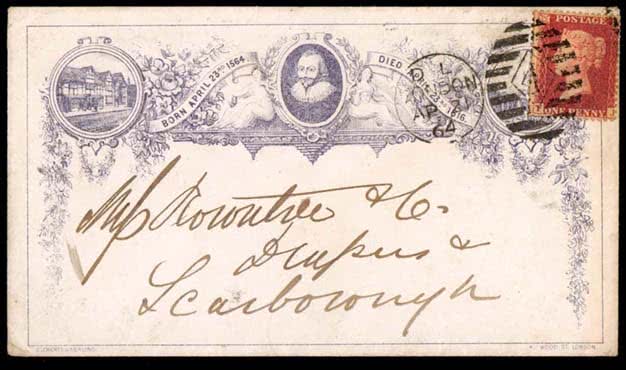 BORN APRIL 23RD 1564
DIED APRIL 23RD 1616.
LONDON
64
POSTAGE
ONE PENNY
Mess Rowntree & Co.
Drapers &
Scarborough
WOOD ST. LONDON